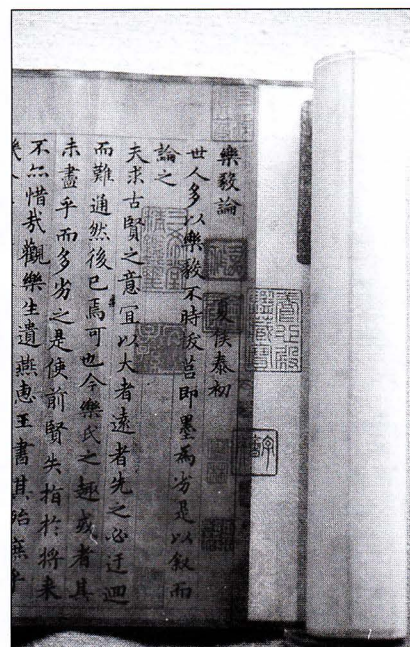 樂毅論 夏侯泰初
世人多以樂毅不時拔莒即墨為劣是以叙而
論之
夫求古賢之意宜以大者遠者先之必迂迴
而難通然後已焉可也今樂氏之趣或者其
未盡乎而多劣之是使前賢失指於將来
不亦惜哉觀樂生遺燕惠王書其殆庶乎
三希堂精鑑璽